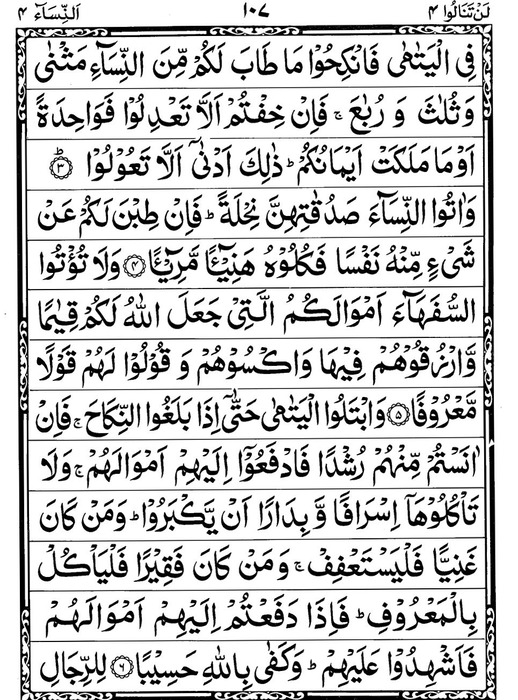 لَنْ تَنَالُوا ۴ ۱۰۷ اَلنِّسَآء ۴
فِى الْيَتٰمٰى فَانْكِحُوْا مَا طَابَ لَكُمْ مِّنَ النِّسَآءِ مَثْنٰى
وَثُلٰثَ وَ رُبٰعَ ۚ فَاِنْ خِفْتُمْ اَلَّا تَعْدِلُوْا فَوَاحِدَةً
اَوْ مَا مَلَكَتْ اَيْمَانُكُمْ ؕ ذٰلِكَ اَدْنٰٓى اَلَّا تَعُوْلُوْا ﴿ؕ۳﴾
وَاٰتُوا النِّسَآءَ صَدُقٰتِهِنَّ نِحْلَةً ؕ فَاِنْ طِبْنَ لَكُمْ عَنْ
شَىْءٍ مِّنْهُ نَفْسًا فَكُلُوْهُ هَنِيْٓئًا مَّرِيْٓئًا ﴿۴﴾ وَلَا تُؤْتُوا
السُّفَهَآءَ اَمْوَالَكُمُ الَّتِىْ جَعَلَ اللّٰهُ لَكُمْ قِيٰمًا
وَّارْزُقُوْهُمْ فِيْهَا وَاكْسُوْهُمْ وَ قُوْلُوْا لَهُمْ قَوْلًا
مَّعْرُوْفًا ﴿۵﴾ وَابْتَلُوا الْيَتٰمٰى حَتّٰٓى اِذَا بَلَغُوا النِّكَاحَ ۚ فَاِنْ
اٰنَسْتُمْ مِّنْهُمْ رُشْدًا فَادْفَعُوْٓا اِلَيْهِمْ اَمْوَالَهُمْ ۚ وَلَا
تَاْكُلُوْهَاۤ اِسْرَافًا وَّ بِدَارًا اَنْ يَّكْبَرُوْا ؕ وَمَنْ كَانَ
غَنِيًّا فَلْيَسْتَعْفِفْ ۚ وَمَنْ كَانَ فَقِيْرًا فَلْيَاْكُلْ
بِالْمَعْرُوْفِ ؕ فَاِذَا دَفَعْتُمْ اِلَيْهِمْ اَمْوَالَهُمْ
فَاَشْهِدُوْا عَلَيْهِمْ ؕ وَكَفٰى بِاللّٰهِ حَسِيْبًا ﴿۶﴾ لِلرِّجَالِ